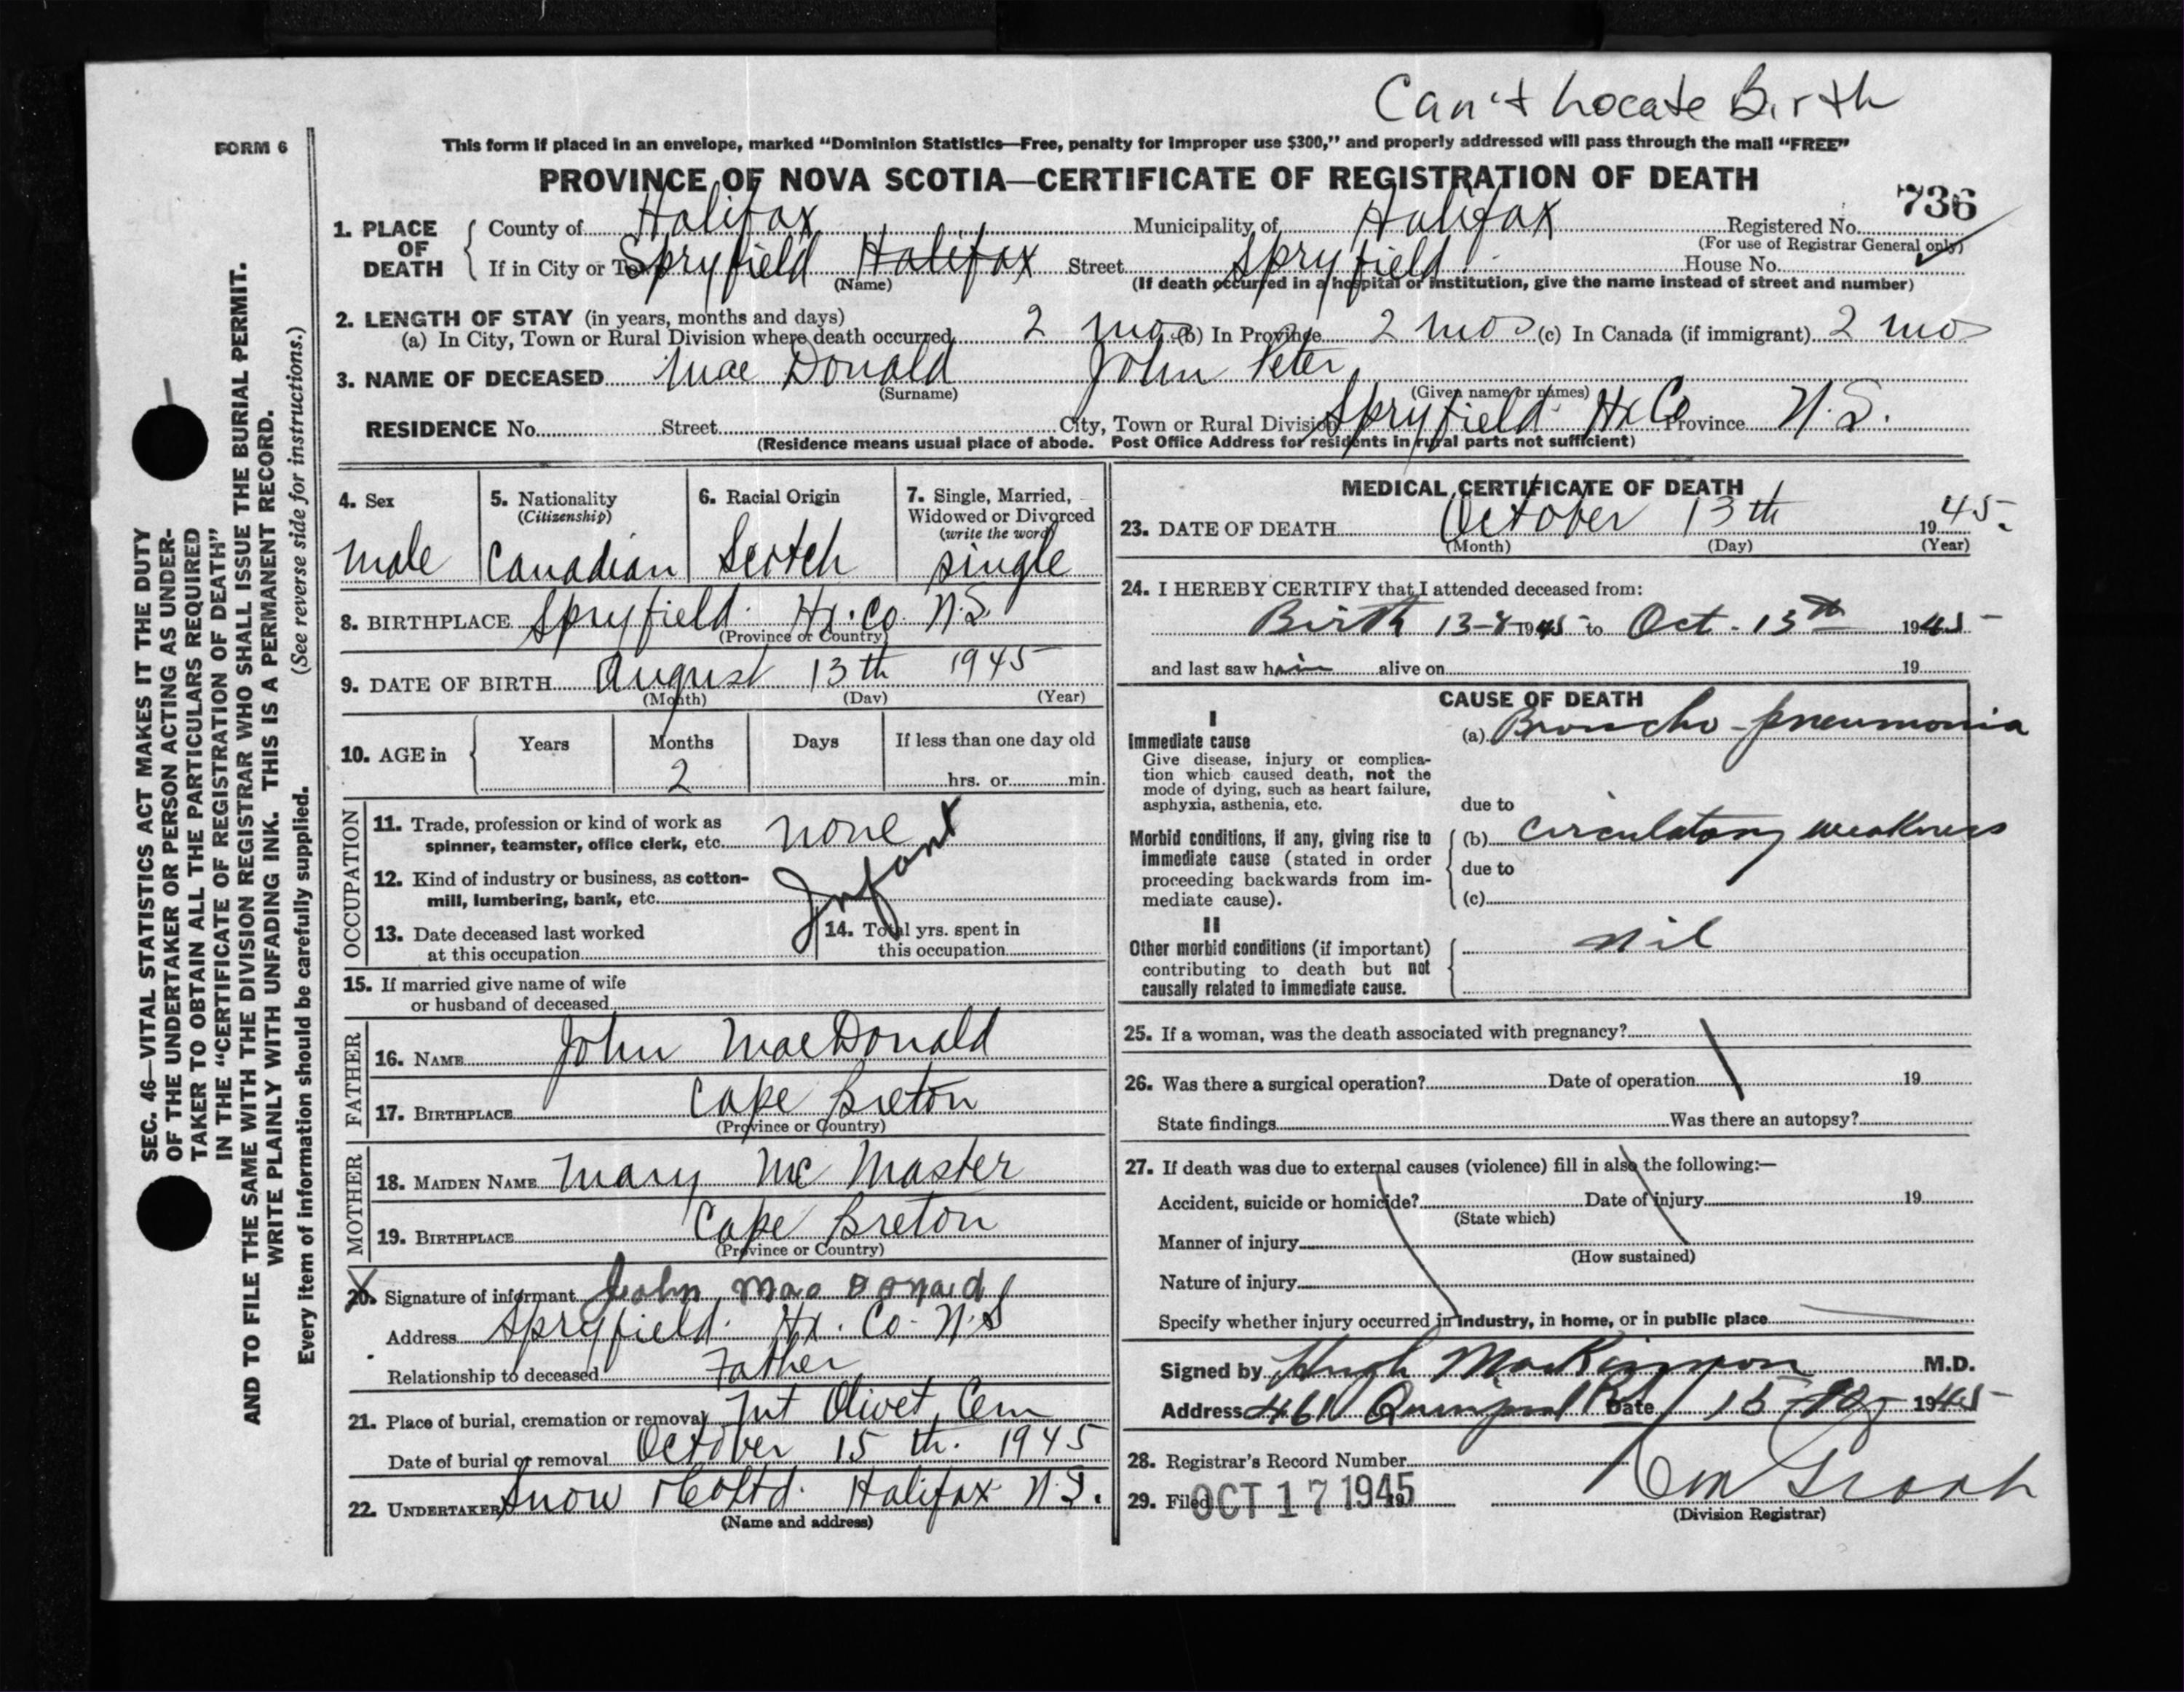 Can't Locate Birth
FORM 6
This form if placed in an envelope, marked “Dominion Statistics—Free, penalty for improper use $300,” and properly addressed will pass through the mail “FREE”
PROVINCE OF NOVA SCOTIA—CERTIFICATE OF REGISTRATION OF DEATH
736
1. PLACE OF DEATH County of Halifax Municipality of Halifax Registered No.
(For use of Registrar General only)
If in City or Town Spryfield Halifax Street Spryfield House No.
(Name) (If death occurred in a hospital or institution, give the name instead of street and number)
2. LENGTH OF STAY (in years, months and days)
(a) In City, Town or Rural Division where death occurred 2 mos (b) In Province 2 mos (c) In Canada (if immigrant) 2 mos
3. NAME OF DECEASED Mac Donald John Peter
(Surname) (Given name or names)
RESIDENCE No. Street City, Town or Rural Division Spryfield Hx Co Province N.S.
(Residence means usual place of abode. Post Office Address for residents in rural parts not sufficient)
4. Sex
male
5. Nationality
(Citizenship)
Canadian
6. Racial Origin
Scotch
7. Single, Married,
Widowed or Divorced
(write the word)
single
8. BIRTHPLACE Spryfield. Hx. Co. N.S.
(Province or Country)
9. DATE OF BIRTH August 13th 1945
(Month) (Day) (Year)
10. AGE in Years Months Days If less than one day old
2 hrs. or min.
OCCUPATION
11. Trade, profession or kind of work as
spinner, teamster, office clerk, etc. none
12. Kind of industry or business, as cotton-
mill, lumbering, bank, etc. Infant
13. Date deceased last worked
at this occupation
14. Total yrs. spent in
this occupation
15. If married give name of wife
or husband of deceased
FATHER
16. NAME John MacDonald
17. BIRTHPLACE Cape Breton
(Province or Country)
MOTHER
18. MAIDEN NAME Mary Mc Master
19. BIRTHPLACE Cape Breton
(Province or Country)
20. Signature of informant John Mac Donald
Address Spryfield. Hx. Co. N.S
Relationship to deceased Father
21. Place of burial, cremation or removal Mt Olivet Cem
Date of burial or removal October 15 th. 1945
22. UNDERTAKER Snow & Co Ltd. Halifax N.S.
(Name and address)
MEDICAL CERTIFICATE OF DEATH
23. DATE OF DEATH October 13th 1945.
(Month) (Day) (Year)
24. I HEREBY CERTIFY that I attended deceased from:
Birth 13-8-1945 to Oct. 13th 1945
and last saw him alive on 19
CAUSE OF DEATH
I
Immediate cause
Give disease, injury or complica-
tion which caused death, not the
mode of dying, such as heart failure,
asphyxia, asthenia, etc.
(a) Broncho-pneumonia
due to
Morbid conditions, if any, giving rise to
immediate cause (stated in order
proceeding backwards from im-
mediate cause).
(b) circulatory weakness
due to
(c)
II
Other morbid conditions (if important)
contributing to death but not
causally related to immediate cause.
nil
25. If a woman, was the death associated with pregnancy?
26. Was there a surgical operation? Date of operation 19
State findings Was there an autopsy?
27. If death was due to external causes (violence) fill in also the following:—
Accident, suicide or homicide? Date of injury 19
(State which)
Manner of injury
(How sustained)
Nature of injury
Specify whether injury occurred in industry, in home, or in public place
Signed by Hugh MacKinnon M.D.
Address 461 Quinpool Rd Date 15 1945
28. Registrar's Record Number
29. Filed OCT 17 1945 19
(Division Registrar)
SEC. 46—VITAL STATISTICS ACT MAKES IT THE DUTY
OF THE UNDERTAKER OR PERSON ACTING AS UNDER-
TAKER TO OBTAIN ALL THE PARTICULARS REQUIRED
IN THE “CERTIFICATE OF REGISTRATION OF DEATH”
AND TO FILE THE SAME WITH THE DIVISION REGISTRAR WHO SHALL ISSUE THE BURIAL PERMIT.
WRITE PLAINLY WITH UNFADING INK. THIS IS A PERMANENT RECORD.
Every item of information should be carefully supplied. (See reverse side for instructions.)